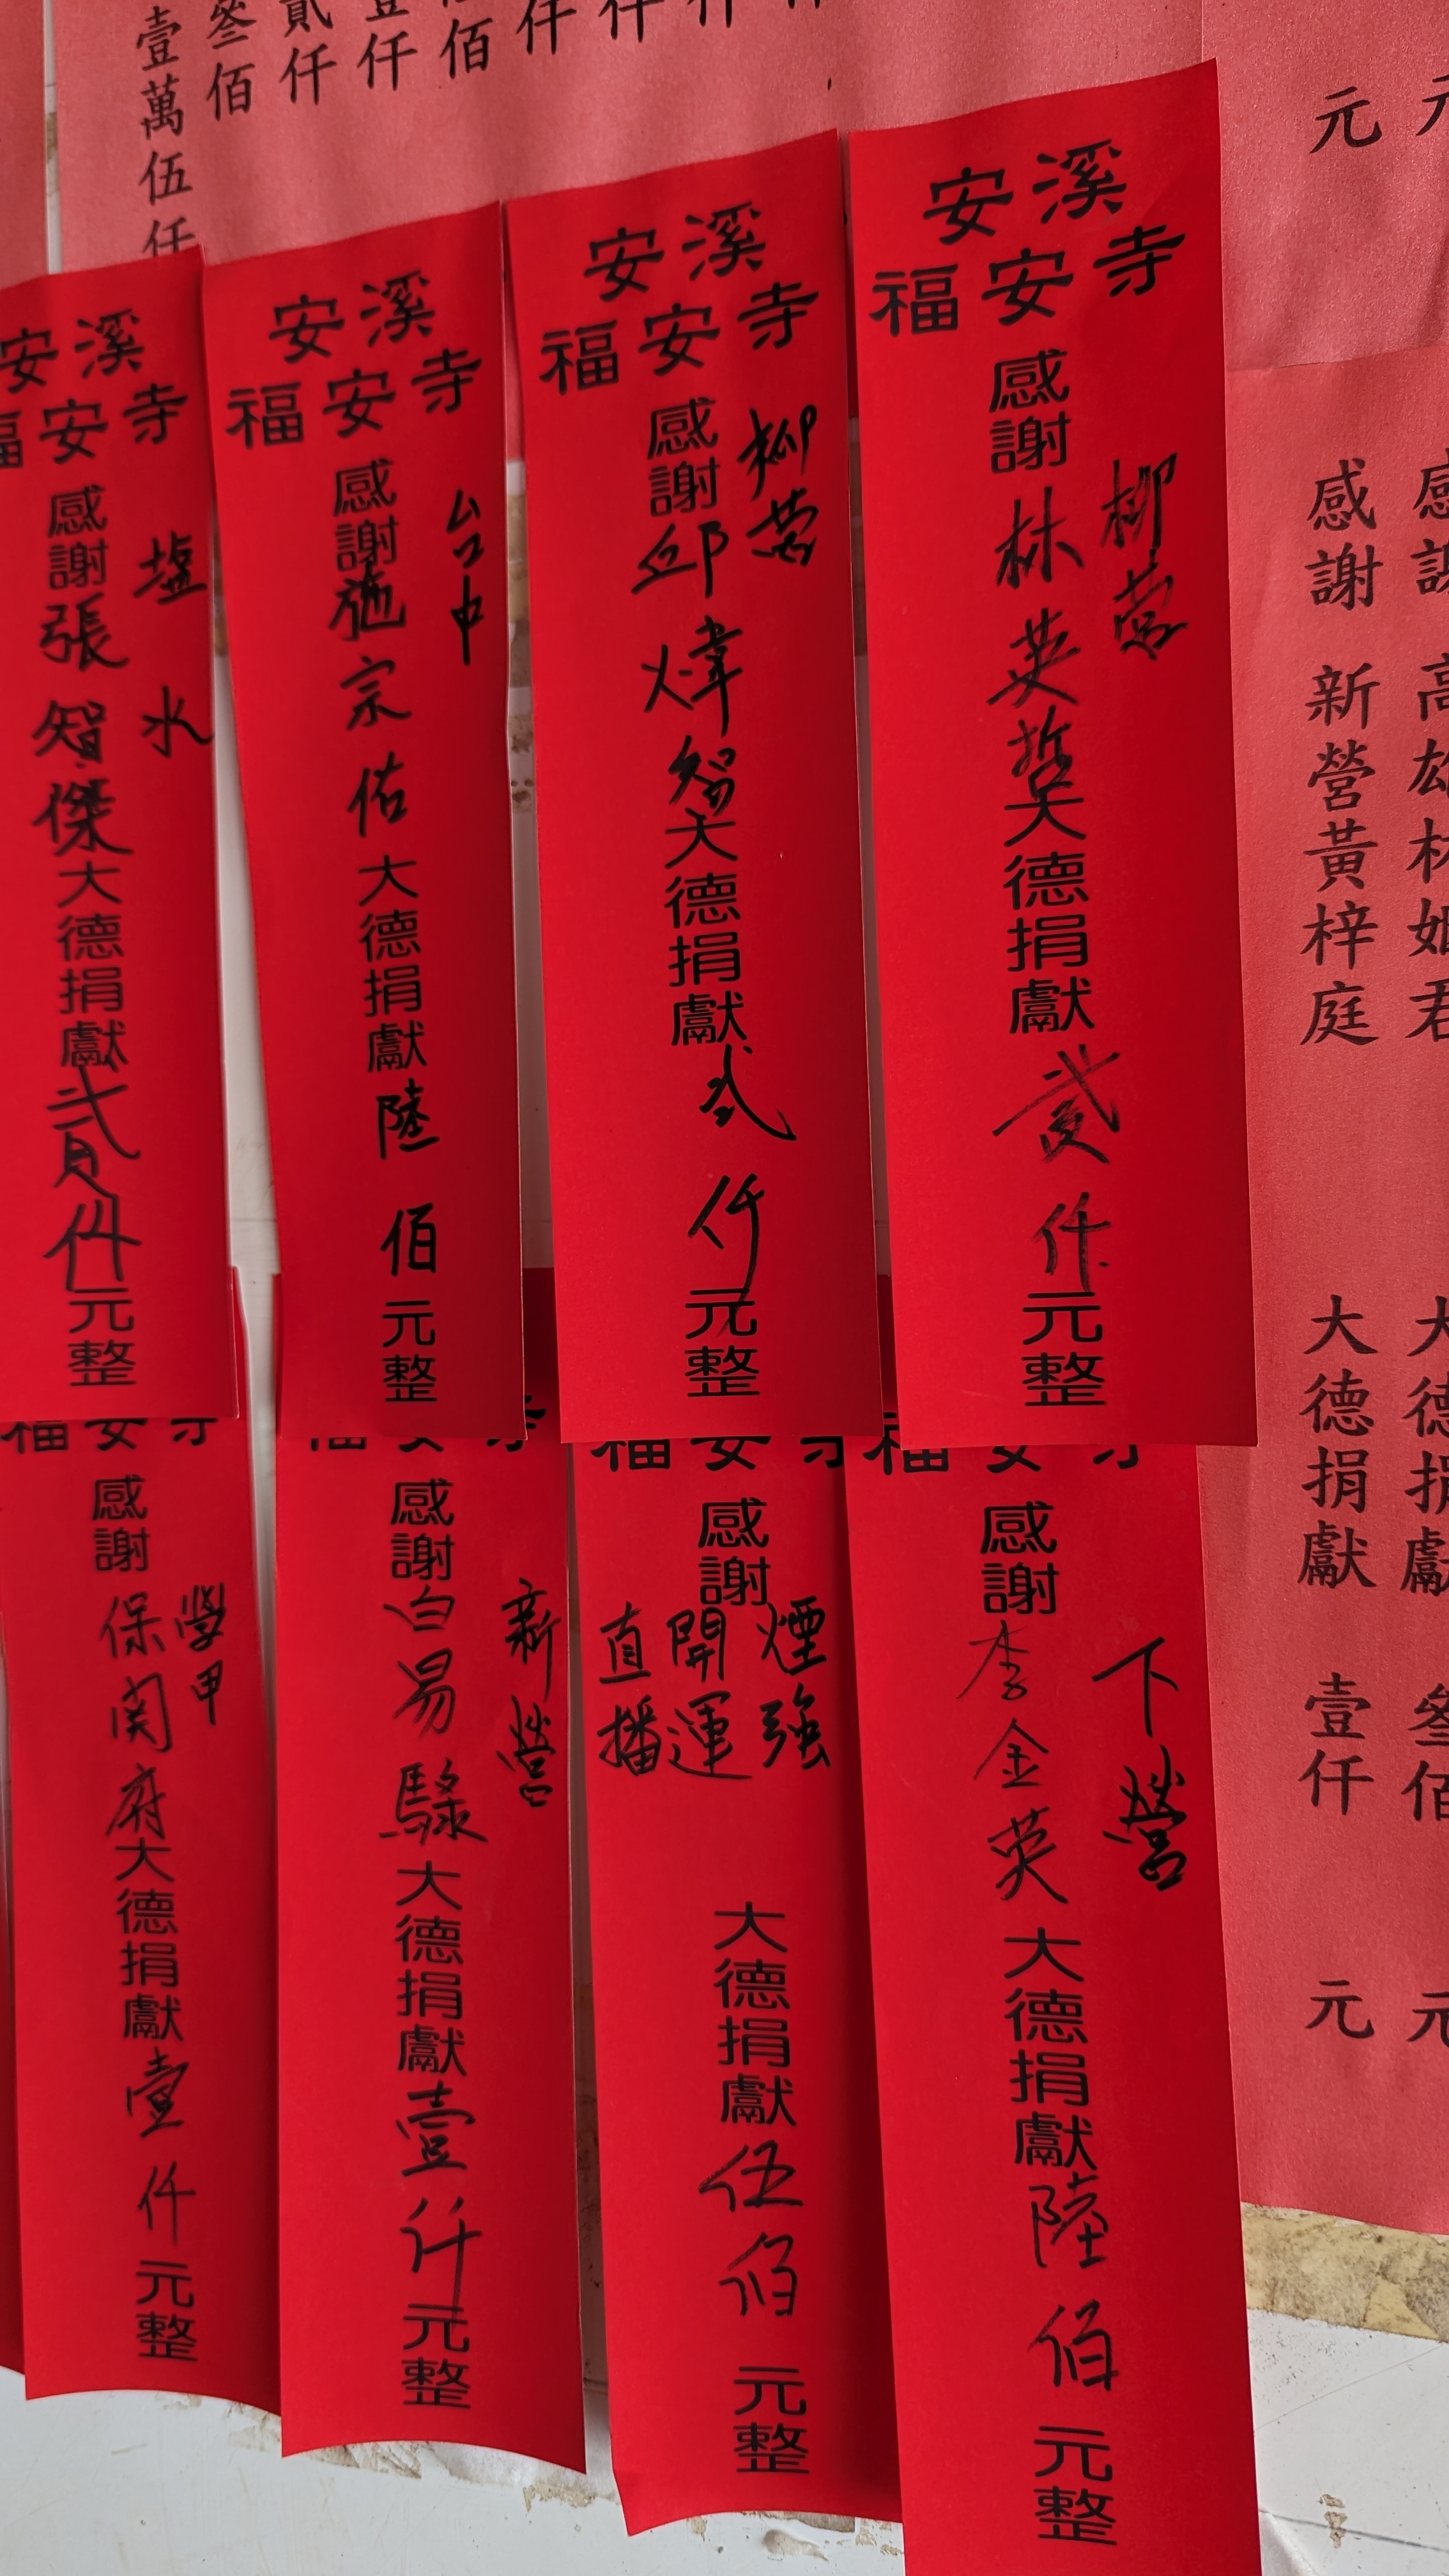 元
感謝 新營黃梓庭 大德捐獻 壹仟 元
安溪
福安寺
柳营
感謝林英哲大德捐獻贰仟元整
安溪
福安寺
柳营
感謝邱煒智大德捐獻弍仟元整
安溪
福安寺
台中
感謝施宗佑大德捐獻陸佰元整
安溪
福安寺
塩水
感謝張智傑大德捐獻貳仟元整
壹萬伍仟
叁佰
貳仟
壹仟
佰
仟
仟
福安寺
下營
感謝李金英大德捐獻陸佰元整
福安寺
感謝
煙強
開運
直播
大德捐獻伍佰元整
福安寺
新營
感謝白易騄大德捐獻壹仟元整
福安寺
學甲
感謝保安府大德捐獻壹仟元整